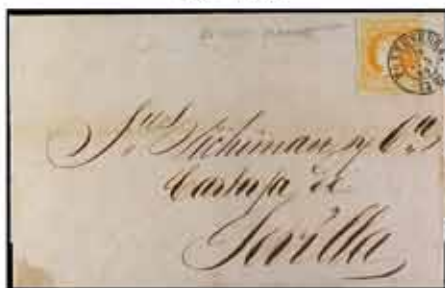 Sres Pickman y Cª
Cartuja de
Sevilla